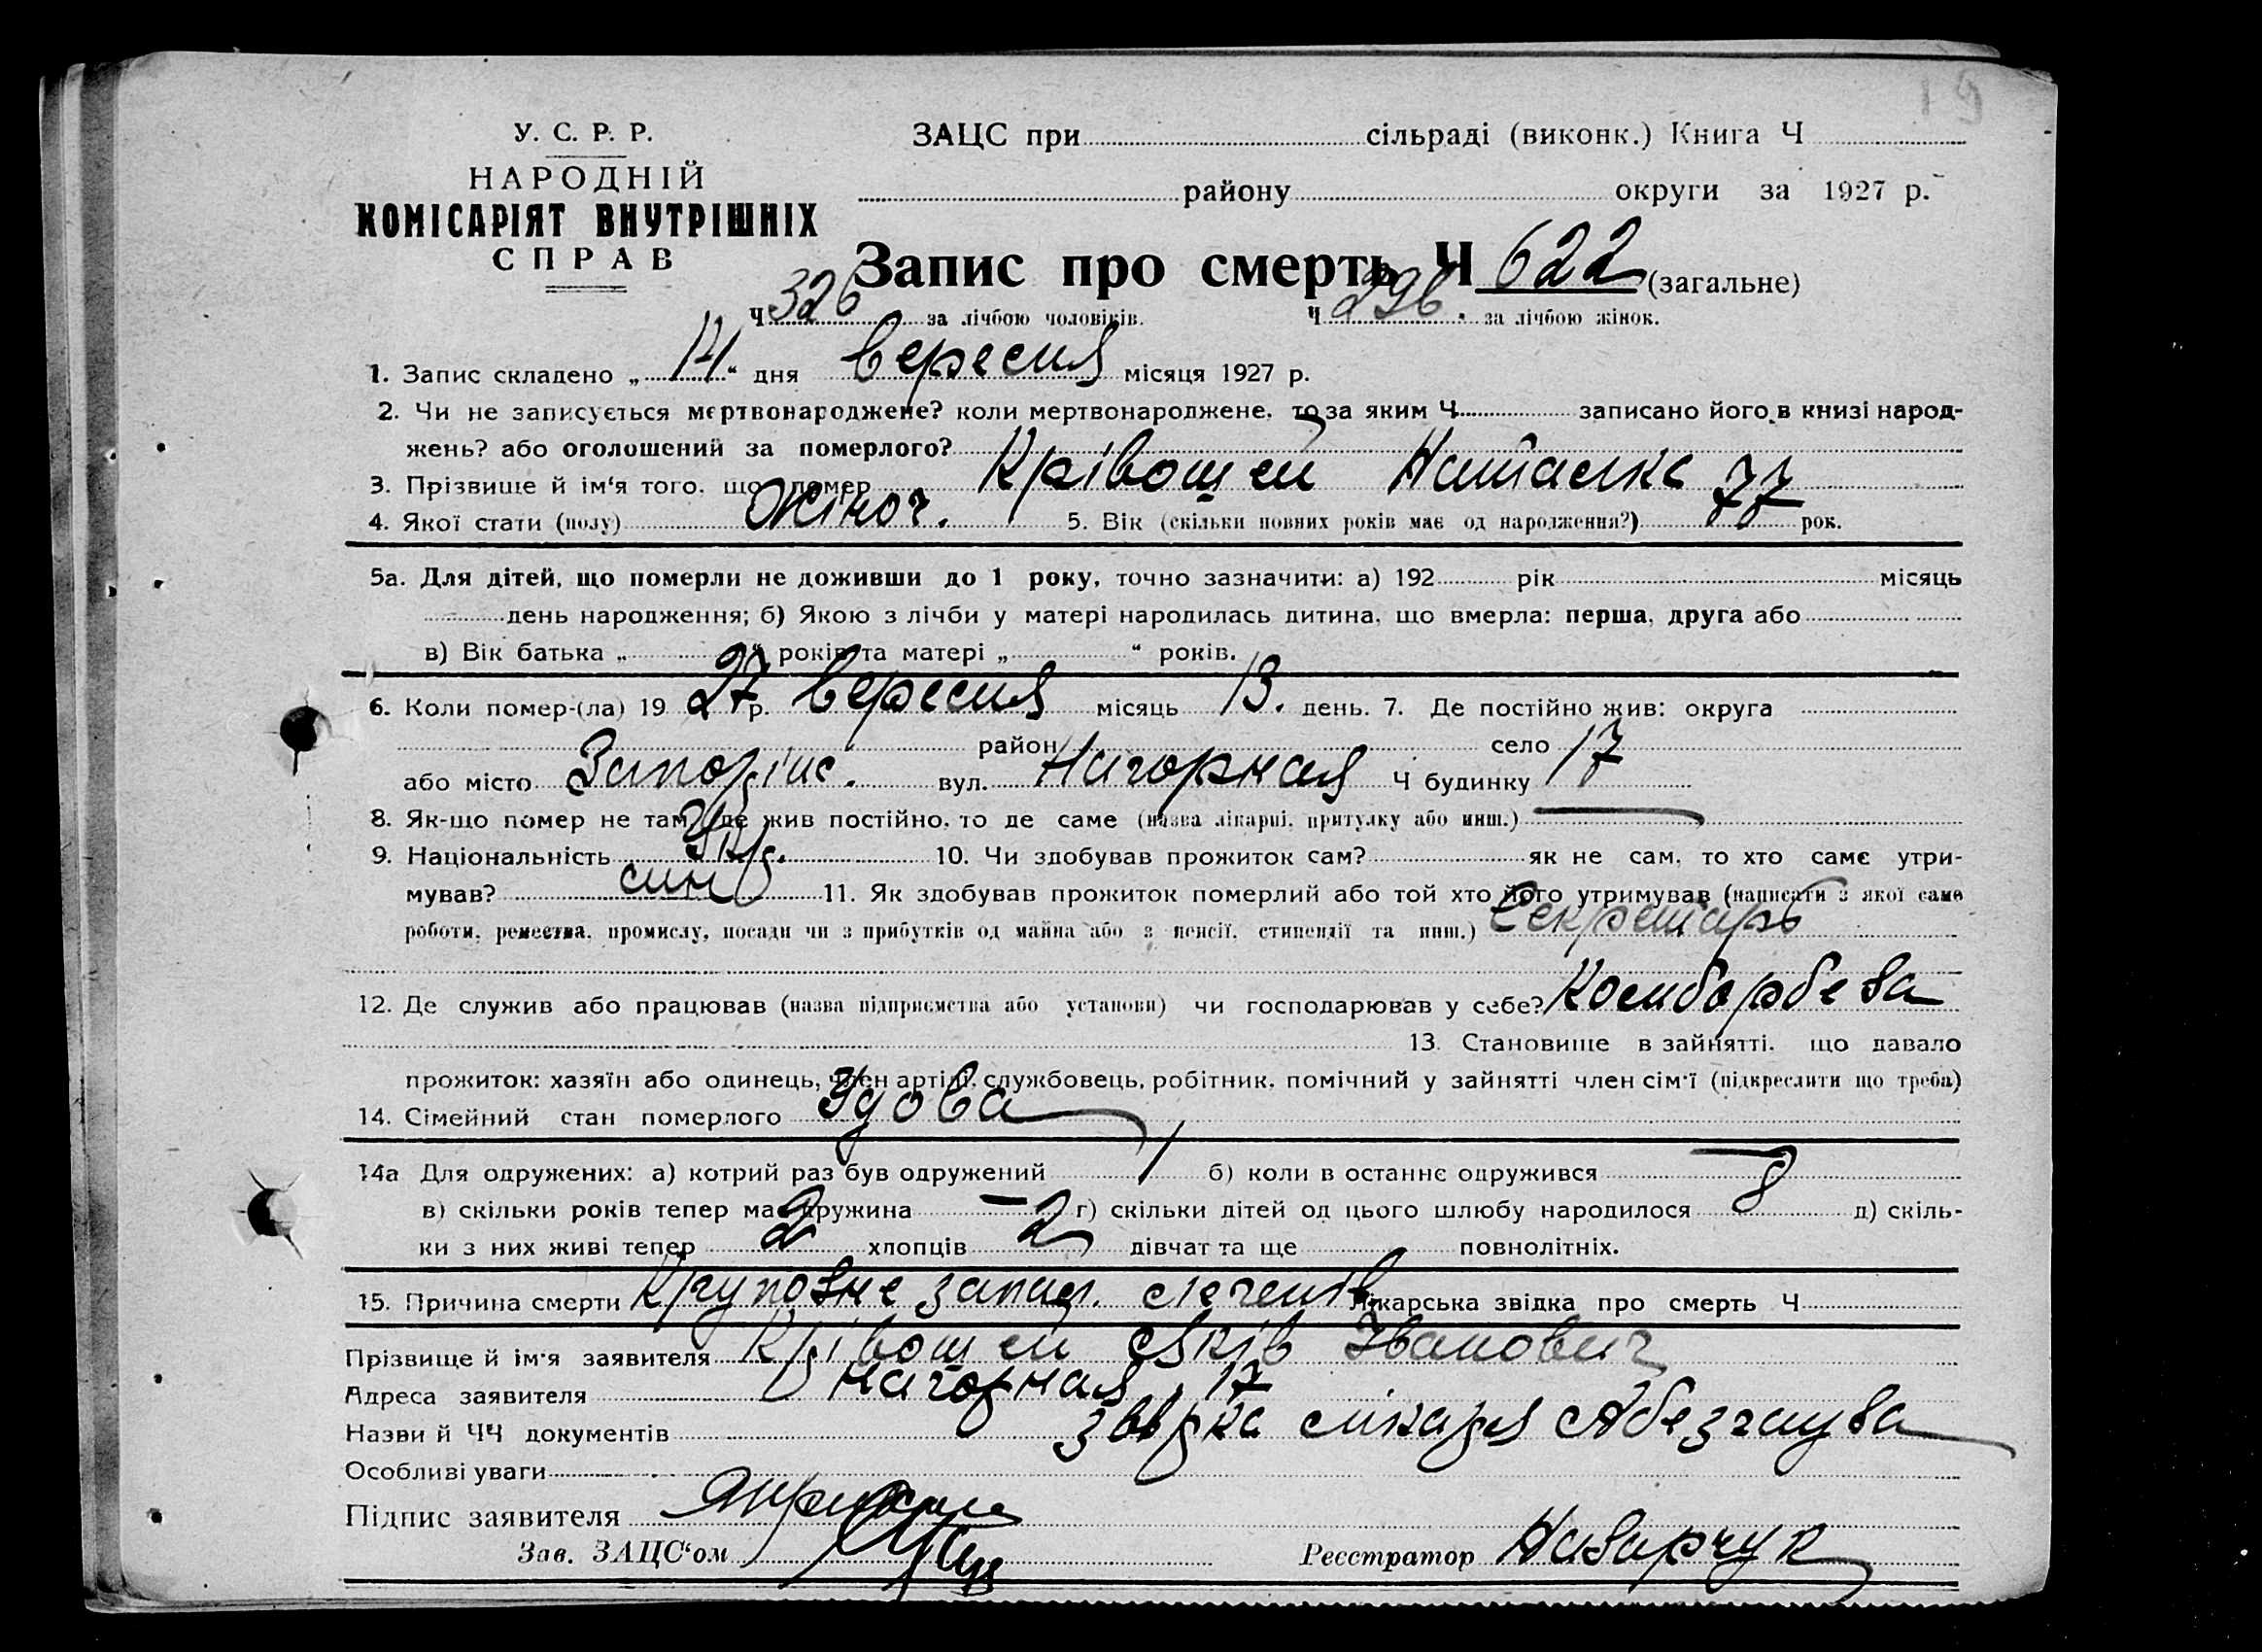 У. С. Р. Р.
НАРОДНІЙ
КОМІСАРІЯТ ВНУТРІШНІХ
СПРАВ
ЗАЦС при сільраді (виконк.) Книга Ч
району округи за 1927 р.
Запис про смерть Ч 622 (загальне)
Ч 326 за лічбою чоловіків. Ч 296 за лічбою жінок.
1. Запис складено „14“ дня вересня місяця 1927 р.
2. Чи не записується мертвонароджене? коли мертвонароджене, то за яким Ч записано його в книзі народ-
жень? або оголошений за померлого?
3. Прізвище й ім‘я того, що помер Крівошей Наталка 77
4. Якої стати (полу) Жіноч. 5. Вік (скільки повних років має од народження?) 77 рок.
5а. Для дітей, що померли не доживши до 1 року, точно зазначити: а) 192 рік місяць
день народження; б) Якою з лічби у матері народилась дитина, що вмерла: перша, друга або
в) Вік батька „ “ років та матері „ “ років.
6. Коли помер-(ла) 1927 р. вересня місяць 13. день. 7. Де постійно жив: округа
район село
або місто вул. Нагорная Ч будинку 17
8. Як-що помер не там, де жив постійно, то де саме (назва лікарні, притулку або инш.) —
9. Національність Укр. 10. Чи здобував прожиток сам? як не сам, то хто саме утри-
мував? син 11. Як здобував прожиток померлий або той хто його утримував (написати з якої саме
роботи, ремества, промислу, посади чи з прибутків од майна або з пенсії, стипендії та инш.) Секретарь
12. Де служив або працював (назва підприємства або установи) чи господарював у себе?
13. Становище в зайнятті, що давало
прожиток: хазяїн або одинець, член артілі, службовець, робітник, помічний у зайнятті член сім‘ї (підкреслити що треба)
14. Сімейний стан померлого Удова
14а Для одружених: а) котрий раз був одружений 1 б) коли в останнє одружився —
в) скільки років тепер має дружина — г) скільки дітей од цього шлюбу народилося 8 д) скіль-
ки з них живі тепер 2 хлопців 2 дівчат та ще повнолітніх.
15. Причина смерти Крупозне запал. легенів Лікарська звідка про смерть Ч
Прізвище й ім‘я заявителя Крівошей Яків Іванович
Адреса заявителя Нагорная 17
Назви й ЧЧ документів звідка лікаря
Особливі уваги
Підпис заявителя
Зав. ЗАЦС‘ом
Реєстратор Назарчук